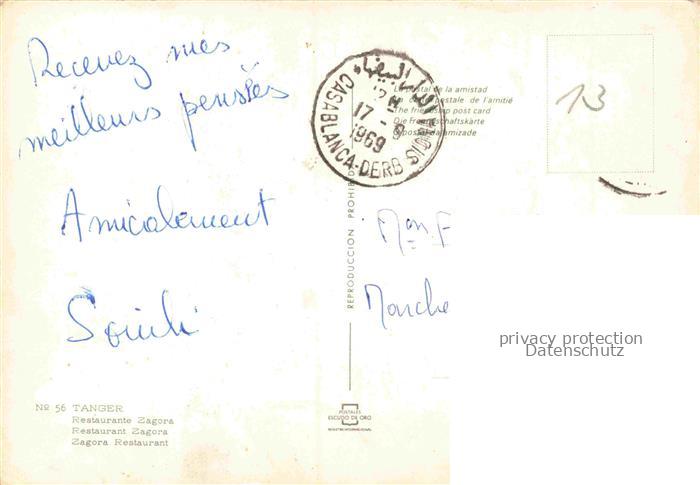 Recevez mes
meilleurs pensées
Amicalement
Nº 56 TANGER
Restaurante Zagora
Restaurant Zagora
Zagora Restaurant
الدار البيضاء
CASABLANCA-DERB SIDI
17 - 9
1969
La postal de la amistad
La carte postale de l'amitié
The friendship post card
Die Freundschaftskarte
O postal da amizade
13
REPRODUCCION PROHIBID
Mon F
Marche
POSTALES
ESCUDO DE ORO
privacy protection
Datenschutz